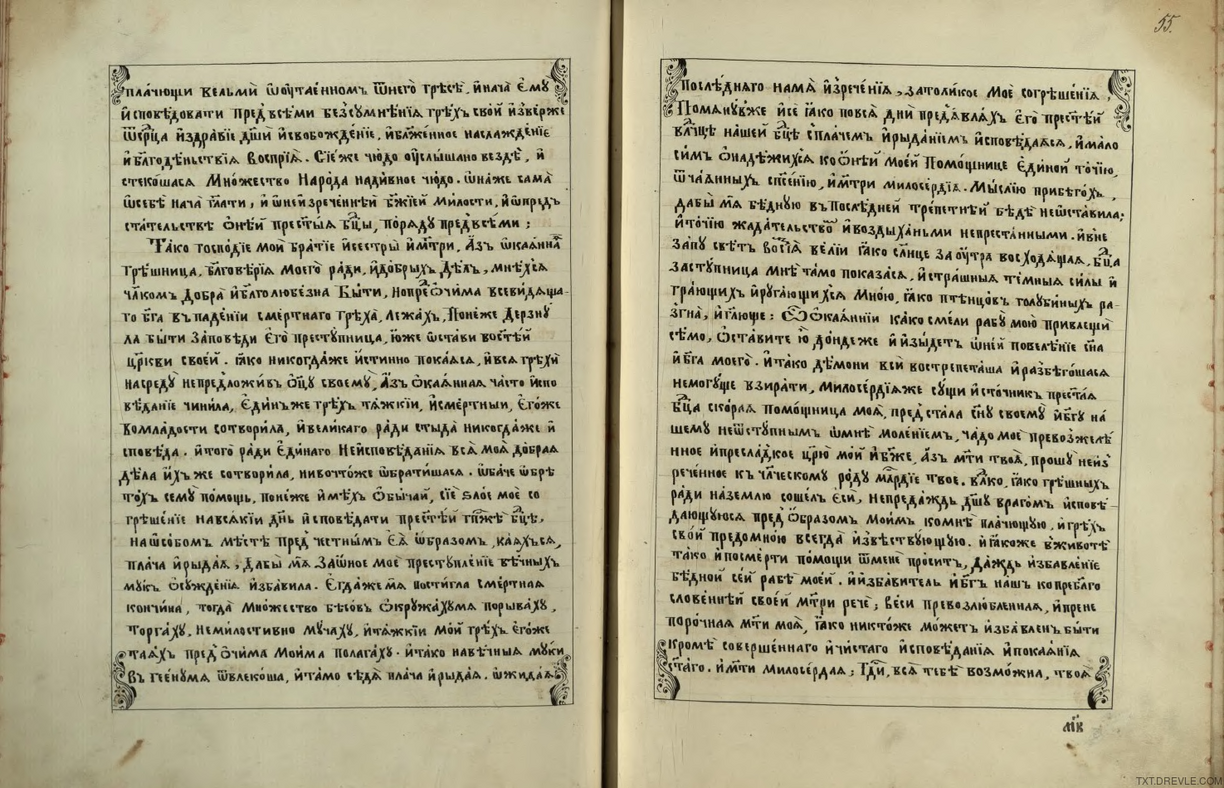 пла́чющи вельмѝ ѿоу҆таённомъ ѿнего̀ грѣсѣ̀. и҆нача̀ є҆мꙋ̀
и҆сповѣ́довати пред̾всѣ́ми без̾сꙋмнѣ́нїѧ грѣ́хъ сво́й и҆зве́рже
ѿсрⷣца и҆здра́вїе дш҃и и҆свобожде́нїе, и҆бл҃же́нное наслажде́нїе
и҆бл҃годѣ́ньствїѧ воспрїѧ̀. сїе́же чю́до оу҆слы́шано вездѣ̀, и҆
стеко́шасѧ мно́жество наро́да нади́вное чю́до. ѡ҆на́же сама̀
ѡ҆себѣ̀ нача̀ гл҃ати, и҆ ѡ҆неизрече́ннѣй бж҃їей ми́лости, и҆ѡ҆пред̾
ста́тельствѣ ѻ҆нѣ́й прест҃ы́ѧ бц҃ы, по́рѧдꙋ пред̾всѣ́ми :
Та́ко госпо́дїе мои̑ бра́тїе и҆сестры̀ и҆мт҃ри. а҆́зъ ѡ҆каѧ́ннаѧ
грѣ́шница, бл҃говѣ́рїѧ моегѡ̀ ра́ди, и҆до́брыхъ дѣ́лъ, мнѣ́хсѧ
чл҃комъ добра̀ и҆бл҃голюбе́зна бы́ти, нопреⷣѻчи́ма всеви́дѧща-
го бг҃а въ паде́нїи сме́ртнаго грѣха̀, лежа́хъ, поне́же дерзнꙋ́
ла бы́ти за́повѣди є҆гѡ̀ престꙋ́пница, ю҆́же ѡ҆ста́ви вост҃ѣ́й
цр҃кви свое́й. ꙗ҆́ко никогда́же и҆́стинно пока́ѧсѧ, и҆всѧ̑ грѣхѝ
насредꙋ̀ непредложи́въ ѻ҆ц҃ꙋ̀ своемꙋ̀, а҆́зъ ѻ҆каѧ́ннаѧ ча́сто и҆́спо
вѣданїе чини́ла, є҆ди́нъже грѣ́хъ тѧ́жкїи, и҆сме́ртныи, є҆го́же
вомла́дости сотвори́ла, и҆вели́каго ра́ди стыда̀ никогда́же и҆
сповѣ́да. и҆того̀ ра́ди є҆ди́наго неи҆сповѣ́данїѧ всѧ̑ моѧ̑ до́браѧ
дѣ́ла и҆́хъ же сотвори́ла, нивочто́же ѡ҆брати́шасѧ. ѡ҆ба́че ѡ҆брѣ
то́хъ семꙋ̀ по́мощь, поне́же и҆мѣ́хъ ѻ҆бы́чай, сїѐ ѕло́е моѐ со
грѣше́нїе навсѧ́кїи дн҃ь и҆сповѣ́дати прест҃ѣ́й гпⷭ҇жѣ бц҃ѣ,
на ѡ҆со́бомъ мѣ́стѣ пред̾ че́стнымъ є҆ѧ̀ ѡ҆́бразомъ, ка́ѧхъсѧ,
пла́ча и҆рыда́ѧ, дабы̀ мѧ̀ заѡ҆́ное моѐ престꙋпле́нїе вѣ́чныхъ
мꙋ́къ ѻ҆сꙋжде́нїѧ и҆зба́вила. є҆гда́жемѧ пости́гла сме́ртнаѧ
кончи́на, тогда̀ мно́жество бѣсо́въ ѻ҆крꙋжа́хꙋмѧ порыва́хꙋ,
торга́хꙋ, неми́лостивно мꙋча́хꙋ, и҆тѧ́жкїи мо́й грѣ́хъ є҆го́же
таѧ́хъ пред̾ ѻ҆чи́ма мои́ма полага́хꙋ. и҆та́ко навѣ́чныѧ мꙋ́ки
въ гее́нꙋмѧ ѿвлеко́ша, и҆та́мо сѣдѧ̀ пла́ча и҆рыда́ѧ. ѡ҆жида́ѧ
55.
послѣ́днѧго намѧ̀ и҆зрече́нїѧ, зато́ликое моѐ согрѣше́нїѧ,
Помѧнꙋ́вже и҆сѐ ꙗ҆́ко повсѧ̀ дни̑ предъѧвлѧ́хъ є҆гѡ̀ прест҃ѣ́й
влⷣцѣ на́шей бц҃ѣ спла́чемъ и҆рыда́нїемъ и҆сповѣ́даѧсѧ, и҆ма́ло
си́мъ ѻ҆надѣ́жихсѧ коѻ҆нѣ́й мое́й помо́щнице є҆ди́ной то́чїю,
ѿча́ѧнныхъ спⷭ҇е́нїю, и҆мт҃ри милосе́рдїѧ. мы́слїю прибѣго́хъ,
дабы̀ мѧ̀ бѣ́днꙋю въ послѣ́дней тре́петнѣй бѣдѣ̀ неѡ҆ста́вила;
и҆то́чїю жада́тельство и҆воздыха́ньми непреста́нными. и҆вне
запꙋ свѣ́тъ восїѧ̀ ве́лїи ꙗ҆́ко сл҃нце заоу҆́тра восходѧ́щаѧ, бц҃а
застꙋ́пница мнѣ̀ та́мо показа́сѧ, и҆стра́шныѧ те́мныѧ си́лы и҆
гра́ющихъ и҆рꙋга́ющихсѧ мно́ю, ꙗ҆́ко птенцо́въ голꙋби́ныхъ ра-
згна̀, и҆гл҃юще : ѽ ѻ҆каѧ́ннїи ка́ко сме́ли рабꙋ̀ мою̀ привлещѝ
сѣ́мо, ѻ҆ста́вите ю҆̀ до́ндеже и҆ и҆зы́детъ ѡ҆не́й повелѣ́нїе сн҃а
и҆бг҃а моегѡ̀. и҆та́ко де́мони всѝ вострепета́ша и҆разбѣго́шасѧ
немогꙋ́ще взира́ти, милосе́рдїѧже сꙋ́щи и҆сто́чникъ прест҃а́ѧ
бц҃а ско́раѧ помо́щница моѧ̀, предста́ла сн҃ꙋ своемꙋ̀ и҆бг҃ꙋ на́
шемꙋ̀ неѿстꙋ́пнымъ ѡ҆мнѣ̀ моле́нїемъ, ча́до моѐ превожделѣ́
нное и҆пресла́дкое цр҃ю мо́й и҆бж҃е, а҆́зъ мт҃и твоѧ̀, прошꙋ̀ неи́з
рече́нное къ чл҃ческомꙋ ро́дꙋ млⷭ҇рдїе твоѐ. влⷣко, ꙗ҆́ко грѣ́шныхъ
ра́ди на́землю соше́лъ є҆сѝ, непреда́ждь дш҃ꙋ враго́мъ и҆сповѣ́
дающꙋюсѧ пред̾ ѻ҆́бразомъ мои́мъ комнѣ̀ пла́чющꙋю, и҆грѣ́хъ
сво́й предомно́ю всегда̀ и҆звѣствꙋ́ющꙋю. и҆ꙗ҆́коже в̾животѣ̀
та́ко и҆посме́рти по́мощи ѿменѐ про́ситъ, да́ждь и҆збавле́нїе
бѣ́дной се́й рабѣ̀ мое́й. и҆и҆зба́витель и҆бг҃ъ на́шъ копребл҃го
слове́ннѣй свое́й мт҃ри речѐ; всѝ превозлю́бленнаѧ, и҆прене
поро́чнаѧ мт҃и моѧ̀, ꙗ҆́ко никто́же мо́жетъ и҆зба́вленъ бы́ти
кромѣ̀ соверше́ннаго и҆чи́стаго и҆сповѣ́данїѧ и҆покаѧ́нїѧ
ст҃а́го. и҆мт҃и милосе́рдаѧ; гдⷭ҇и, всѧ̑ тебѣ̀ возмо́жна, твоѧ̀
TXT.DREVLE.COM